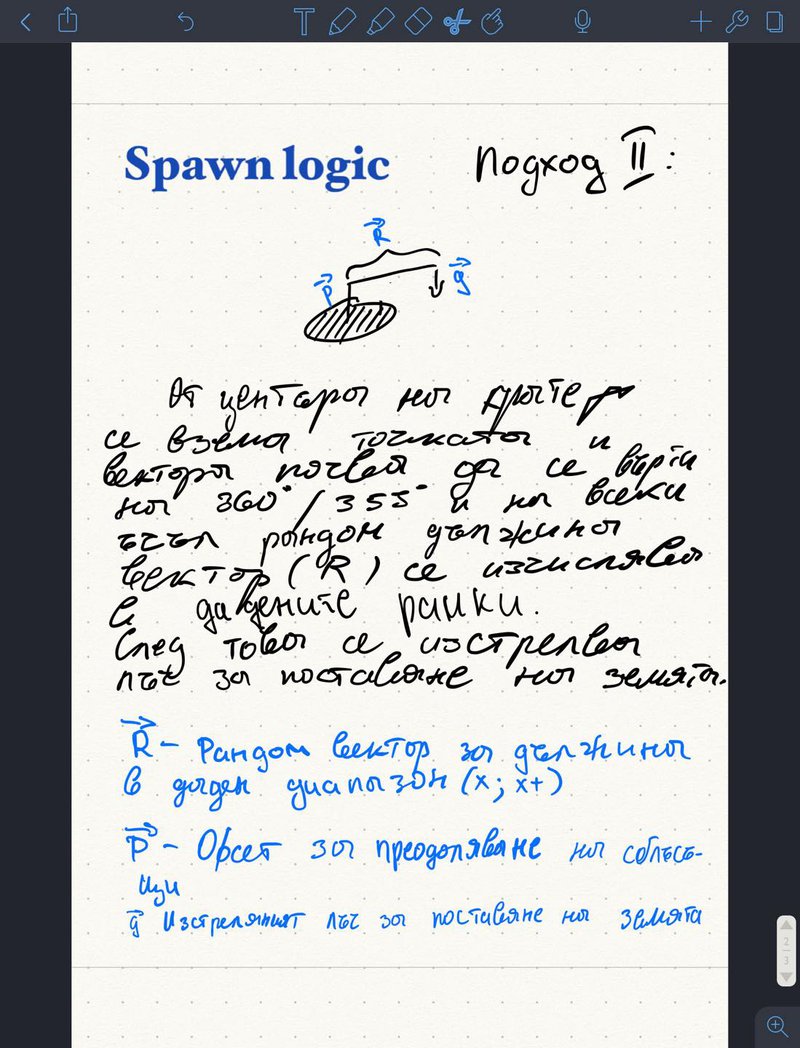 Spawn logic Подход II:
R
P
g
От центъра на кратера
се взема точката и
вектора почва да се върти
на 360°/355° и на всеки
ъгъл рандом дължина
вектор (R) се изчислява
в дадените рамки.
След това се изстрелва
лъч за поставяне на земята.
R - Рандом вектор за дължина
в даден диапазон (x; x+)
P - Офсет за преодоляване на сблъсъ-
ци
g Изстреляният лъч за поставяне на земята
2
3